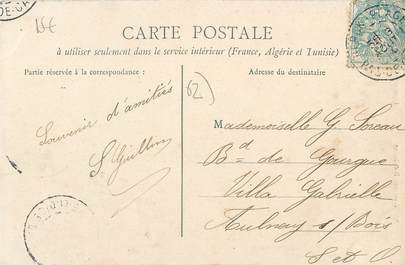 CARTE POSTALE
à utiliser seulement dans le service intérieur (France, Algérie et Tunisie)
Partie réservée à la correspondance :
Adresse du destinataire
62)
Souvenir d'amitiés
Mademoiselle G. Soreau
Bd de Gourgue
Villa Gabrielle
Aulnay s/ Bois
S et O.